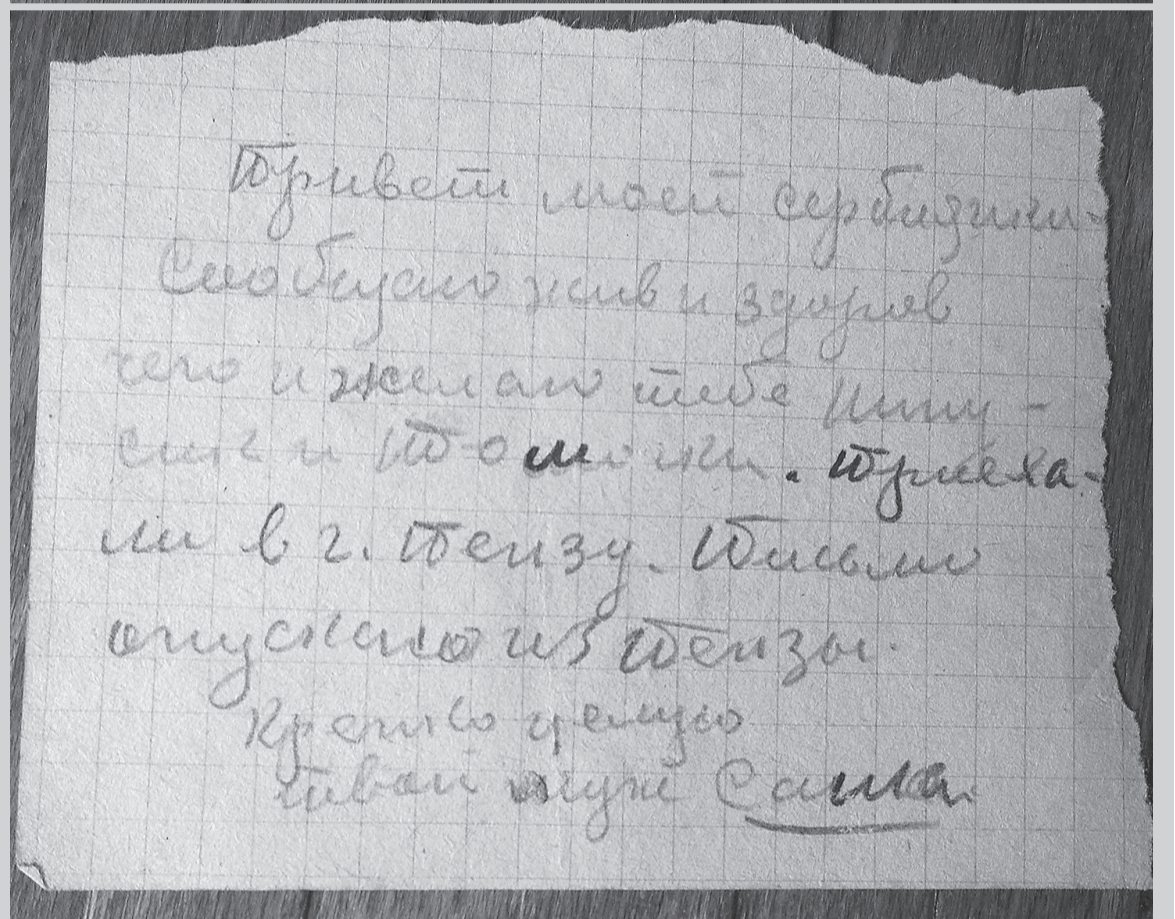 Привет моей сербиянки-
Сообщаю жив и здоров
чего и желаю тебе Нину-
син и Томочки. Приеха-
ли в г. Пензу. Письмо
опускаю из Пензы.
Крепко целую
твой муж Сашка.